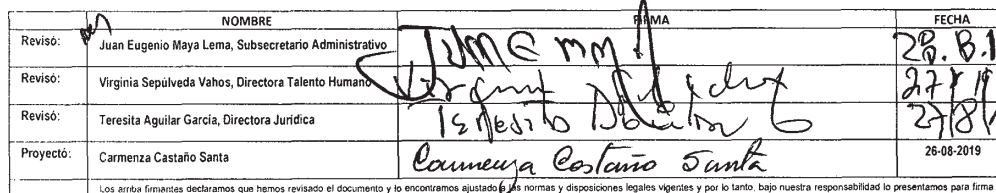 NOMBRE FIRMA FECHA
Revisó: Juan Eugenio Maya Lema, Subsecretario Administrativo
Revisó: Virginia Sepúlveda Vahos, Directora Talento Humano
Revisó: Teresita Aguilar García, Directora Jurídica 27/8/
Proyectó: Carmenza Castaño Santa Carmenza Castaño Santa 26-08-2019
Los arriba firmantes declaramos que hemos revisado el documento y lo encontramos ajustado a las normas y disposiciones legales vigentes y por lo tanto, bajo nuestra responsabilidad lo presentamos para firma